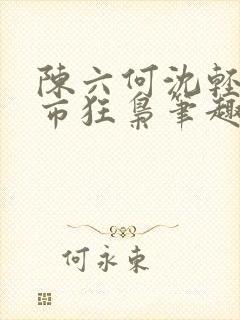 陳六何沈輕
市狂梟筆趣
何永東